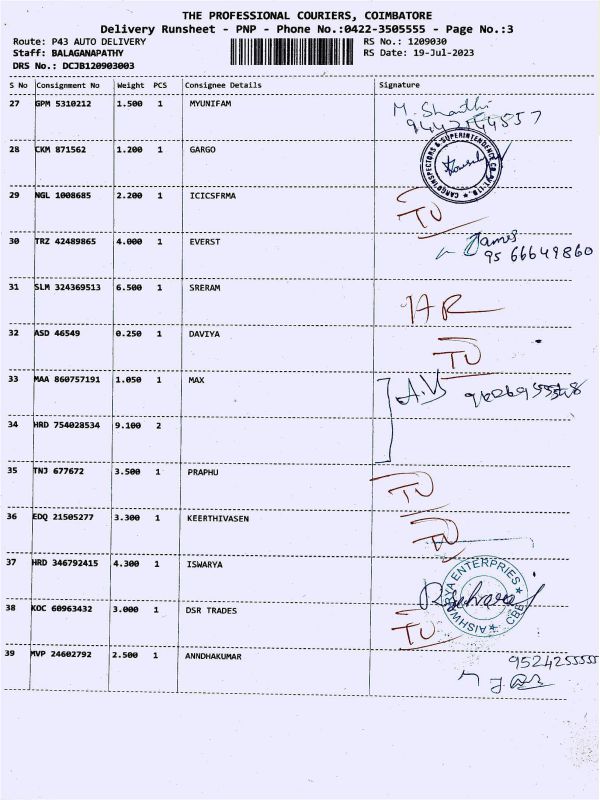 THE PROFESSIONAL COURIERS, COIMBATORE
Delivery Runsheet - PNP - Phone No.:0422-3505555 - Page No.:3
Route: P43 AUTO DELIVERY RS No.: 1209030
Staff: BALAGANAPATHY RS Date: 19-Jul-2023
DRS No.: DCJB120903003
S No Consignment No Weight PCS Consignee Details Signature
27 GPM 5310212 1.500 1 MYUNIFAM M. Shanthi
28 CKM 871562 1.200 1 GARGO CARGO INSPECTORS & SUPERINTENDENCE CO. PVT. LTD.
29 NGL 1008685 2.200 1 ICICSFRMA TU
30 TRZ 42489865 4.000 1 EVERST James
95 66649860
31 SLM 324369513 6.500 1 SRERAM
32 ASD 46549 0.250 1 DAVIYA TU
33 MAA 860757191 1.050 1 MAX A.V
34 HRD 754028534 9.100 2
35 TNJ 677672 3.500 1 PRAPHU TU
36 EDQ 21505277 3.300 1 KEERTHIVASEN TU
37 HRD 346792415 4.300 1 ISWARYA AISHWARYA ENTERPRIES CBE
38 KOC 60963432 3.000 1 DSR TRADES TU
39 MVP 24602792 2.500 1 ANNDHAKUMAR 9524255555